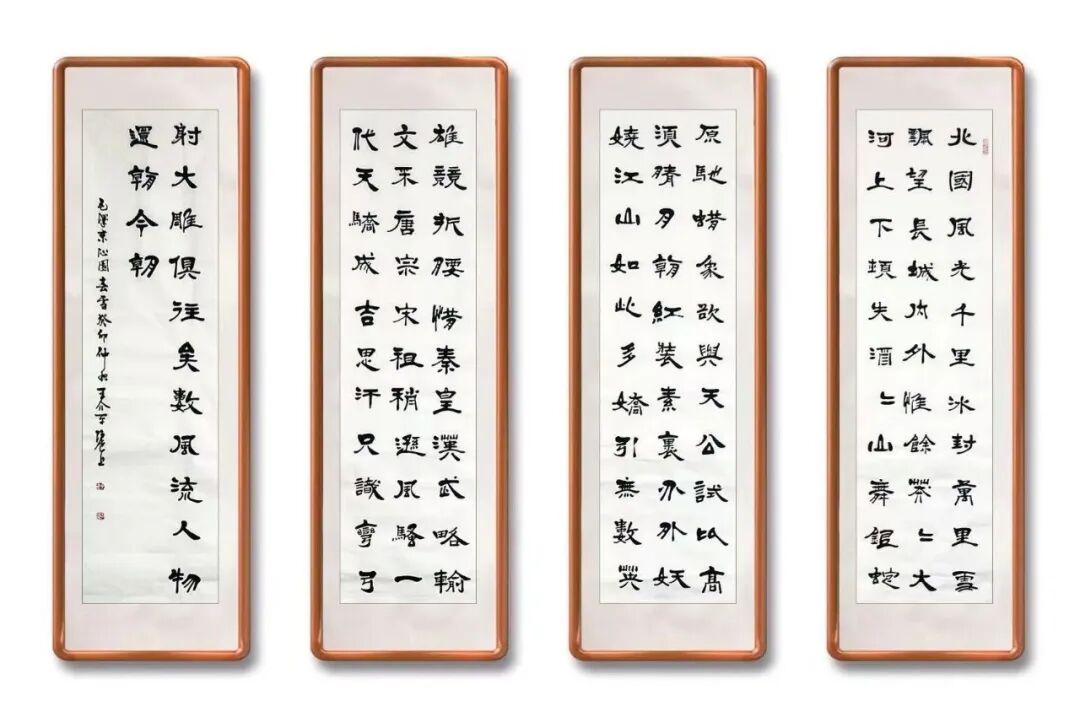 北國風光千里冰封萬里雪
飄望長城内外惟餘莽〻大
河上下頓失滔〻山舞銀蛇
原馳蜡象欲與天公試比高
須晴日看紅裝素裹分外妖
嬈江山如此多嬌引無數英
雄競折腰惜秦皇漢武略輸
文采唐宗宋祖稍遜風騷一
代天驕成吉思汗只識彎弓
射大雕俱往矣數風流人物
還看今朝
毛澤東沁園春雪癸卯仲秋